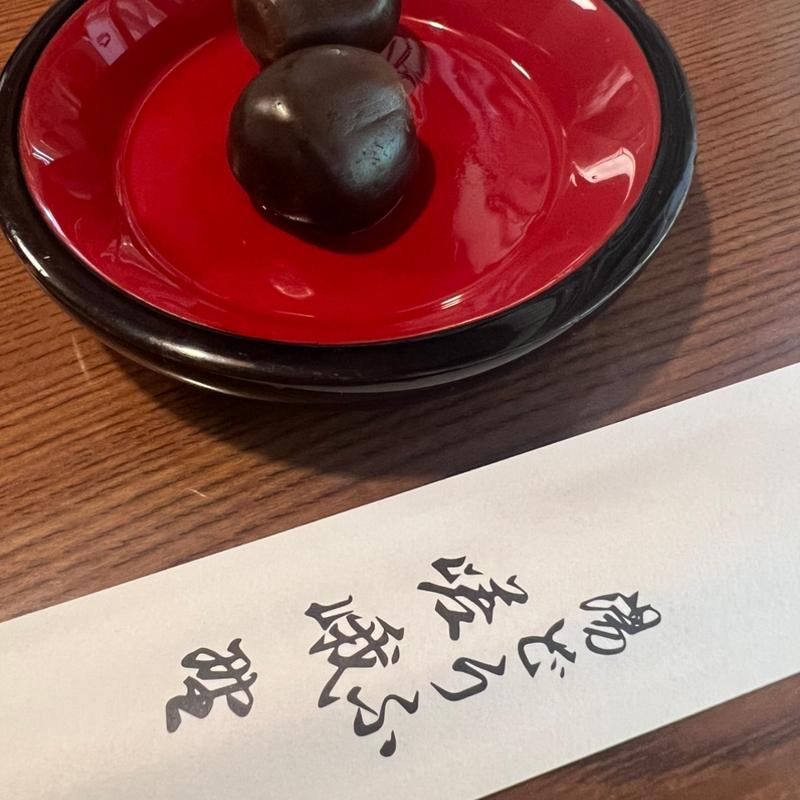 湯どうふ
嵯峨野